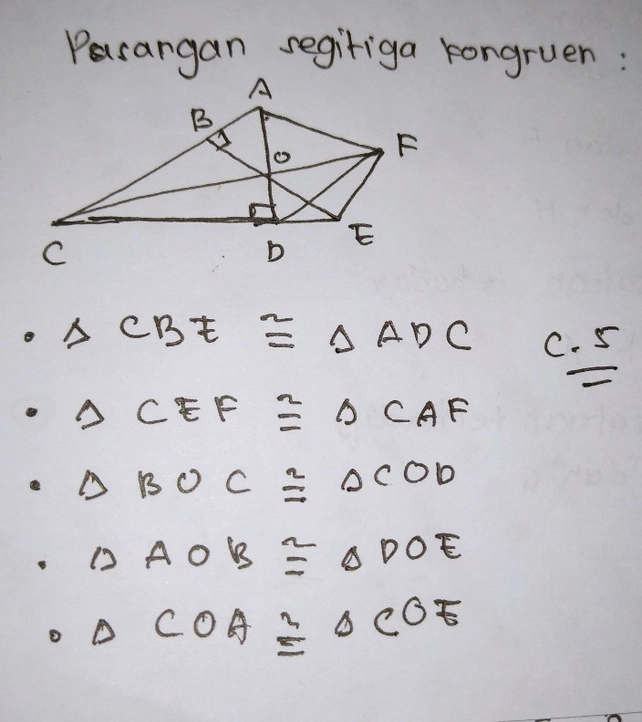 Pasangan segitiga kongruen :
A
B
F
O
C
D
E
• Δ CBE ≅ Δ ADC
C. 5
• Δ CEF ≅ Δ CAF
• Δ BOC ≅ Δ COD
• Δ AOB ≅ Δ DOE
• Δ COA ≅ Δ COE